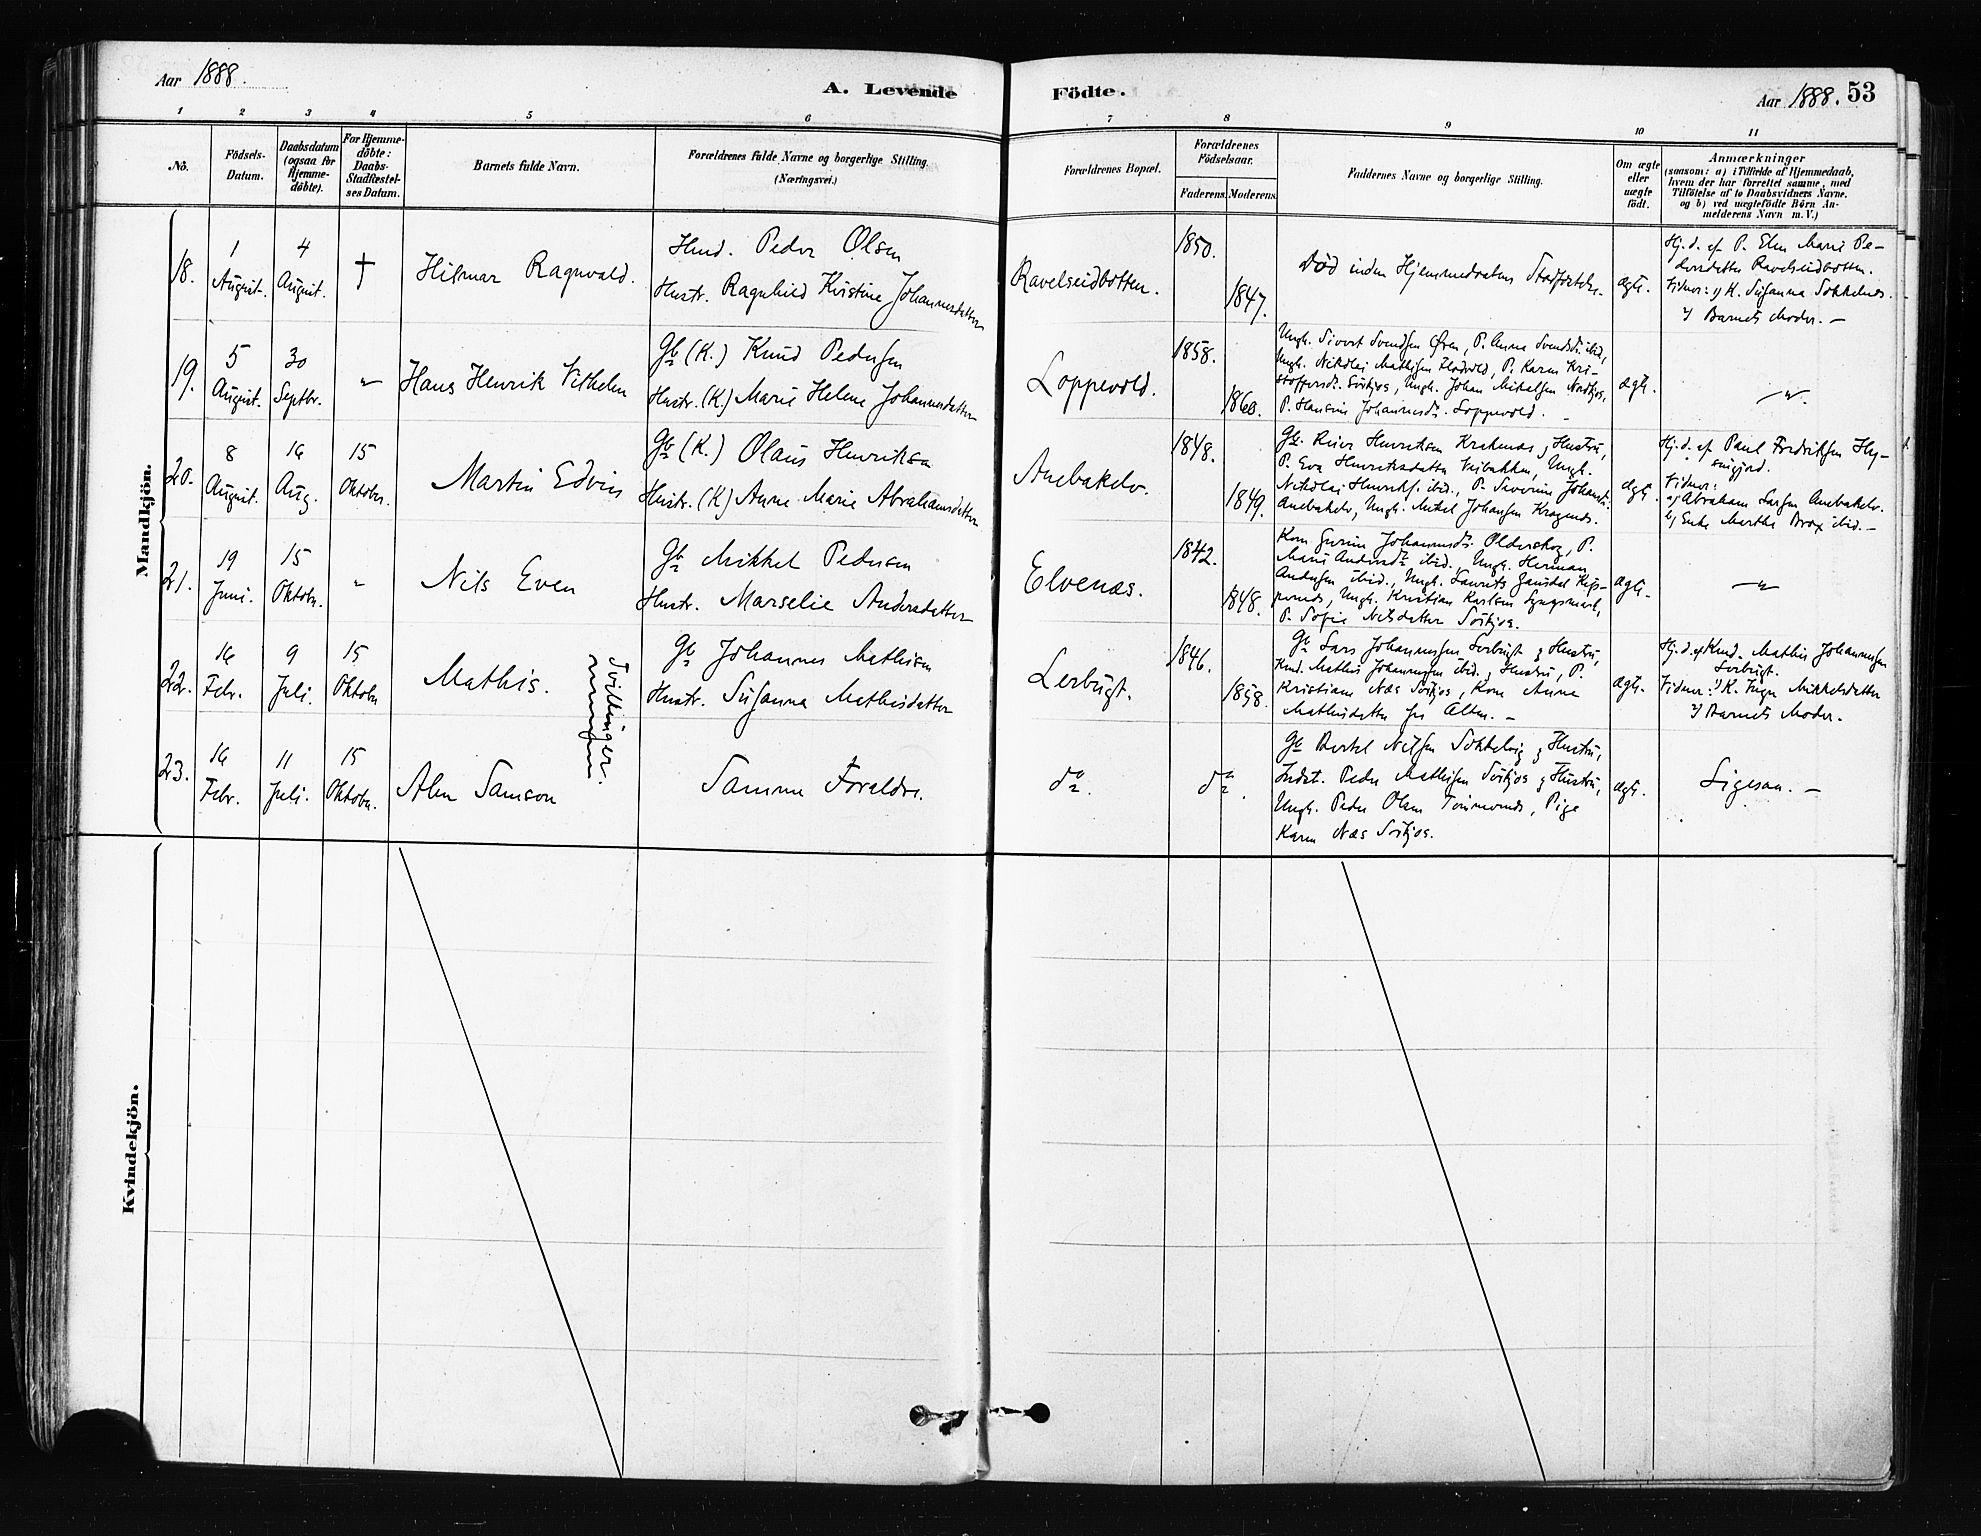 Aar 1888.
A. Levende Födte.
Aar 1888. 53
1 2 3 4 5 6 7 8 9 10 11
No.
Födsels-
Datum.
Daabsdatum
(ogsaa for
Hjemme-
döbte).
For Hjemme-
döbte:
Daabs-
Stadfæstel-
ses Datum.
Barnets fulde Navn.
Forældrenes fulde Navne og borgerlige Stilling
(Næringsvei.)
Forældrenes Bopæl.
Forældrenes
Födselsaar.
Faderens. Moderens.
Faddernes Navne og borgerlige Stilling.
Om ægte
eller
uægte
födt.
Anmærkninger
(saasom: a) i Tilfælde af Hjemmedaab,
hvem der har forrettet samme, med
Tilföielse af to Daabsvidners Navne.
og b) ved uægtefödte Börn An-
melderens Navn m. V.)
Mandkjön.
18.
1
August.
4
August.
†
Hilmar Ragnvald.
Hmd. Peder Olsen
Hustr. Ragnhild Kristine Johannesdatter
Ravelseidbotten.
1850.
1847.
Död inden Hjemmedaabens Stadfæstelse.
ægte.
Hj. d. af P. Elen Marie Pe-
dersdatter Ravelseidbotten.
Vidner: 1) K. Susanna Sokkelnes.
2) Barnets Moder. —
19.
5
August.
30
Septbr.
"
Hans Henrik Vilhelm
Gb (K.) Knud Pedersen
Hustr. (K.) Marie Helene Johannesdatter
Loppevold.
1858.
1860.
Ungk. Sivert Svendsen Øren, P. Anna Svendsdr ibid,
Ungk. Nikolai Mathisen, P. Karen Kri-
stoffersdr., Ungk. Johan Mikalsen
P. Hansine Johannesdr. Loppevold. —
ægte.
— " —
20.
8
August.
16
Aug.
15
Oktobr.
Martin Edvin
Gb (K.) Olaus Henriksen
Hustr. (K) Anne Marie Abrahamsdatter
Anebakelv.
1848.
1849.
Gb. Henriksen Krakenæs & Hustru,
P. Eva Henriksdatter, Ungk.
Nikolai Henriks. ibid., P. Severine
Anebakelv, Ungk. Mikel Johansen
ægte.
Hj. d. af Paul Fredriksen
Vidner:
a) Abraham Larsen Anebakelv.
b) Enke Marthe ibid. —
21.
19
Juni.
15
Oktobr.
"
Nils Even
Gb Mikkel Pedersen
Hustr. Marselie Andersdatter
Elvenæs.
1842.
1848.
Kone Johannesdr. Olderskog, P.
Marie Andersdr ibid., Ungk. Herman
Andersen ibid., Ungk. Laurits
Ungk. Kristian Karlsen
P. Sofie Nilsdatter
ægte.
— " —
22.
16
Febr.
9
Juli.
15
Oktobr
Mathis.
Tvillinger
Gb Johannes Mathisen
Hustr. Susanna Mathisdatter
Lerbugt.
1846.
1858.
Gb Lars Johannessen Lerbugt & Hustru,
Hmd. Mathis Johannessen ibid. & Hustru, P.
Kristiane Næs, Kone Anne
Mathisdatter fra Alten. —
ægte.
Hj. d. af Hmd. Mathis Johannessen
Lerbugt.
Vidner: 1) K. Inga Mikkelsdatter
2) Barnets Moder. —
23.
16
Febr.
11
Juli.
15
Oktobr.
Samson
Samme Forældre.
do.
do.
Gb Bertel Nilsen & Hustru,
Indst. Peder Mathisen & Hustru,
Ungk. Peder Olsen, Pige
Karen Næs
ægte.
Ligesaa. —
Kvindekjön.